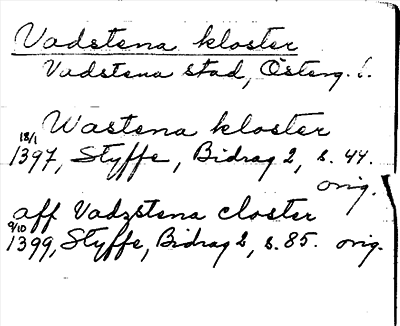 Vadstena kloster
Vadstena stad, Österg. l.
Wastena kloster
18/1 1397, Styffe, Bidrag 2, s. 44.
orig.
aff Vadzstena closter
9/10 1399, Styffe, Bidrag 2, s. 85. orig.